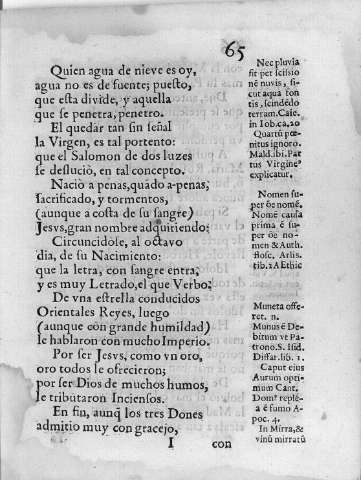 65
Quien agua de nieve es oy,
agua no es de fuente; puesto,
que esta divide, y aquella
que se penetra, penetro.
El quedar tan sin señal
la Virgen, es tal portento:
que el Salomon de dos luzes
se desluciò, en tal concepto.
Naciò a penas, quãdo a-penas,
sacrificado, y tormentos,
(aunque a costa de su sangre)
Jesvs, gran nombre adquiriendo:
Circuncidole, al octavo
dia, de su Nacimiento:
que la letra, con sangre entra;
y es muy Letrado, el que Verbo.
De vna estrella conducidos
Orientales Reyes, luego
(aunque con grande humildad)
le hablaron con mucho Imperio.
Por ser Jesvs, como vn oro,
oro todos le ofrecieron;
por ser Dios de muchos humos,
le tributaron Inciensos.
En fin, aunq̃ los tres Dones
admitio muy con gracejo,
I con
Nec pluvia
sit per scissio
nē nuvis, si-
cut aqua fon
tis, scindēdo
terram. Caie.
in Iob. ca. 20
Quartũ pœ-
nitus ignoro.
Mald. ibi. Par
tus Virginẽ
explicatur.
Nomen su-
per õe nomē.
Nomē causa
prima ē su-
per õe no-
men & Auth.
Arlis.
lib. 2 A Ethic
Muneta offe-
ret. n.
Munus ē De-
bitum vt Pa-
trono. S. Isid.
Differ. lib. 1.
Caput ejus
Aurum opti-
mum Cant.
Domᵒ replē-
a ē fumo A-
poc. 4.
In Mirra, &
vinũ mirratũ